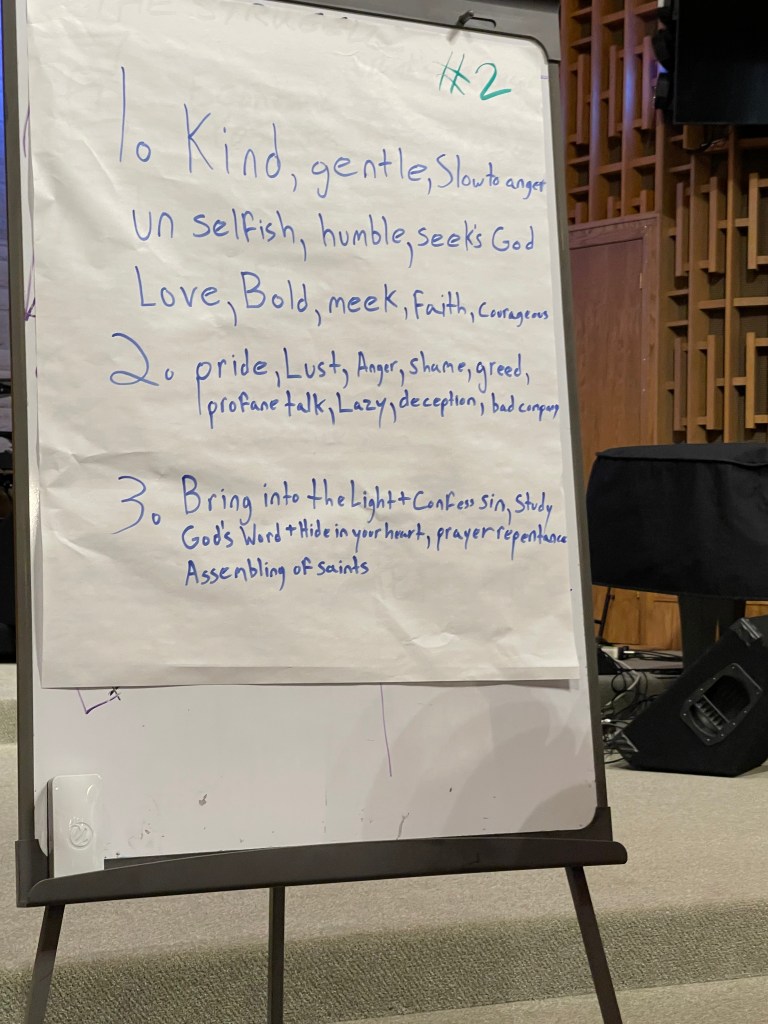 #2
1. Kind, gentle, Slow to anger
un selfish, humble, seek's God
Love, Bold, meek, Faith, Courageous
2. pride, Lust, Anger, shame, greed,
profane talk, Lazy, deception, bad company
3. Bring into the Light + Confess sin, Study
God's Word + Hide in your heart, prayer repentance
Assembling of saints